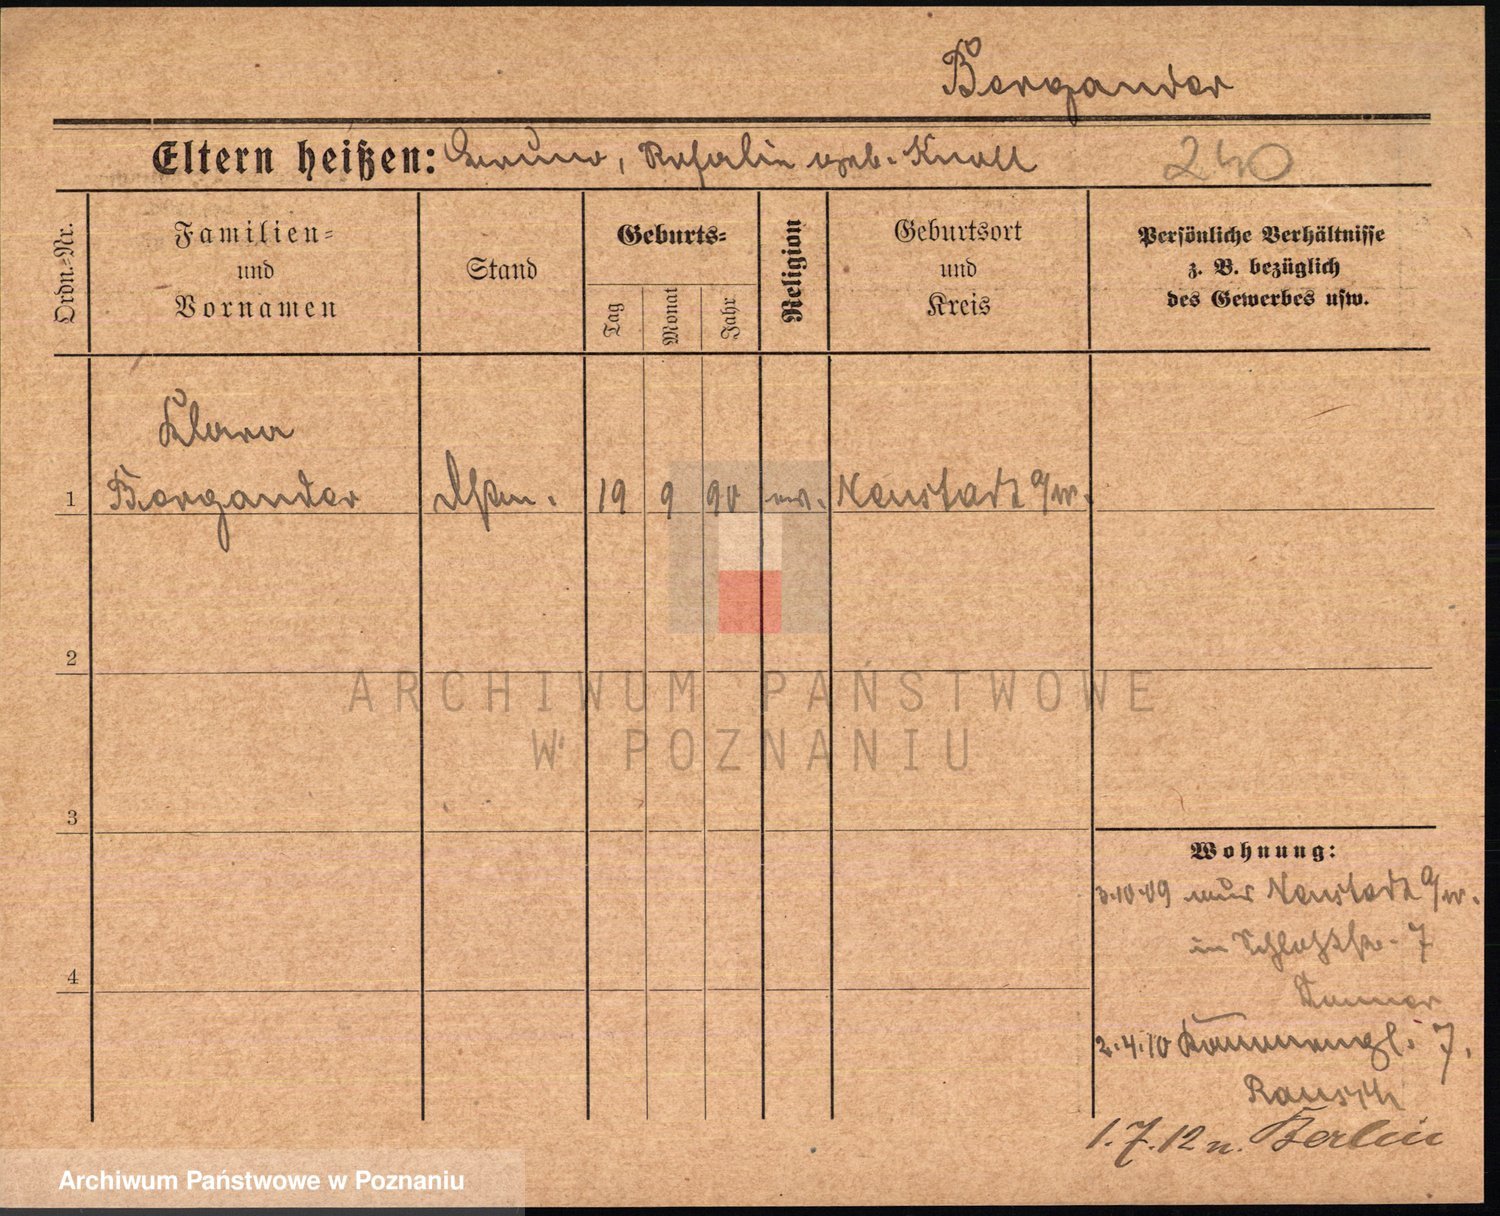 Bergander
Eltern heißen: Bruno, Rosalie geb. Knoll 240
Ordn.-Nr.
Familien-
und
Vornamen
Stand
Geburts-
Tag
Monat
Jahr
Religion
Geburtsort
und
Kreis
Persönliche Verhältnisse
z. B. bezüglich
des Gewerbes usw.
Klara
1 Bergander 19 9 90 ev. Neustadt a/W.
2
3
4
Wohnung:
3.10.09 aus Neustadt a/W.
in Schloßstr. 7
2.4.10 7.
Rausch
1.7.12 n. Berlin
ARCHIWUM PAŃSTWOWE
W POZNANIU
Archiwum Państwowe w Poznaniu